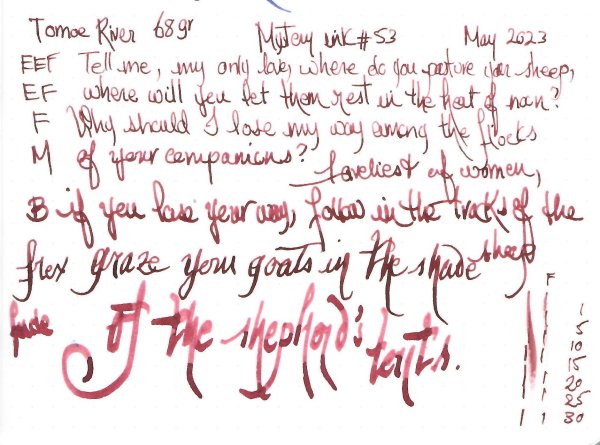 Tomoe River 68gr Mystery ink #53 May 2023
EEF Tell me, my only love, where do you pasture your sheep,
EF where will you let them rest in the heat of noon?
F Why should I lose my way among the flocks
M of your companions? Loveliest of women,
B if you lose your way, follow in the tracks of the
flex graze your goats in the shade sheep
fude of the shepherd's tents.
F
5
10
15
20
25
30